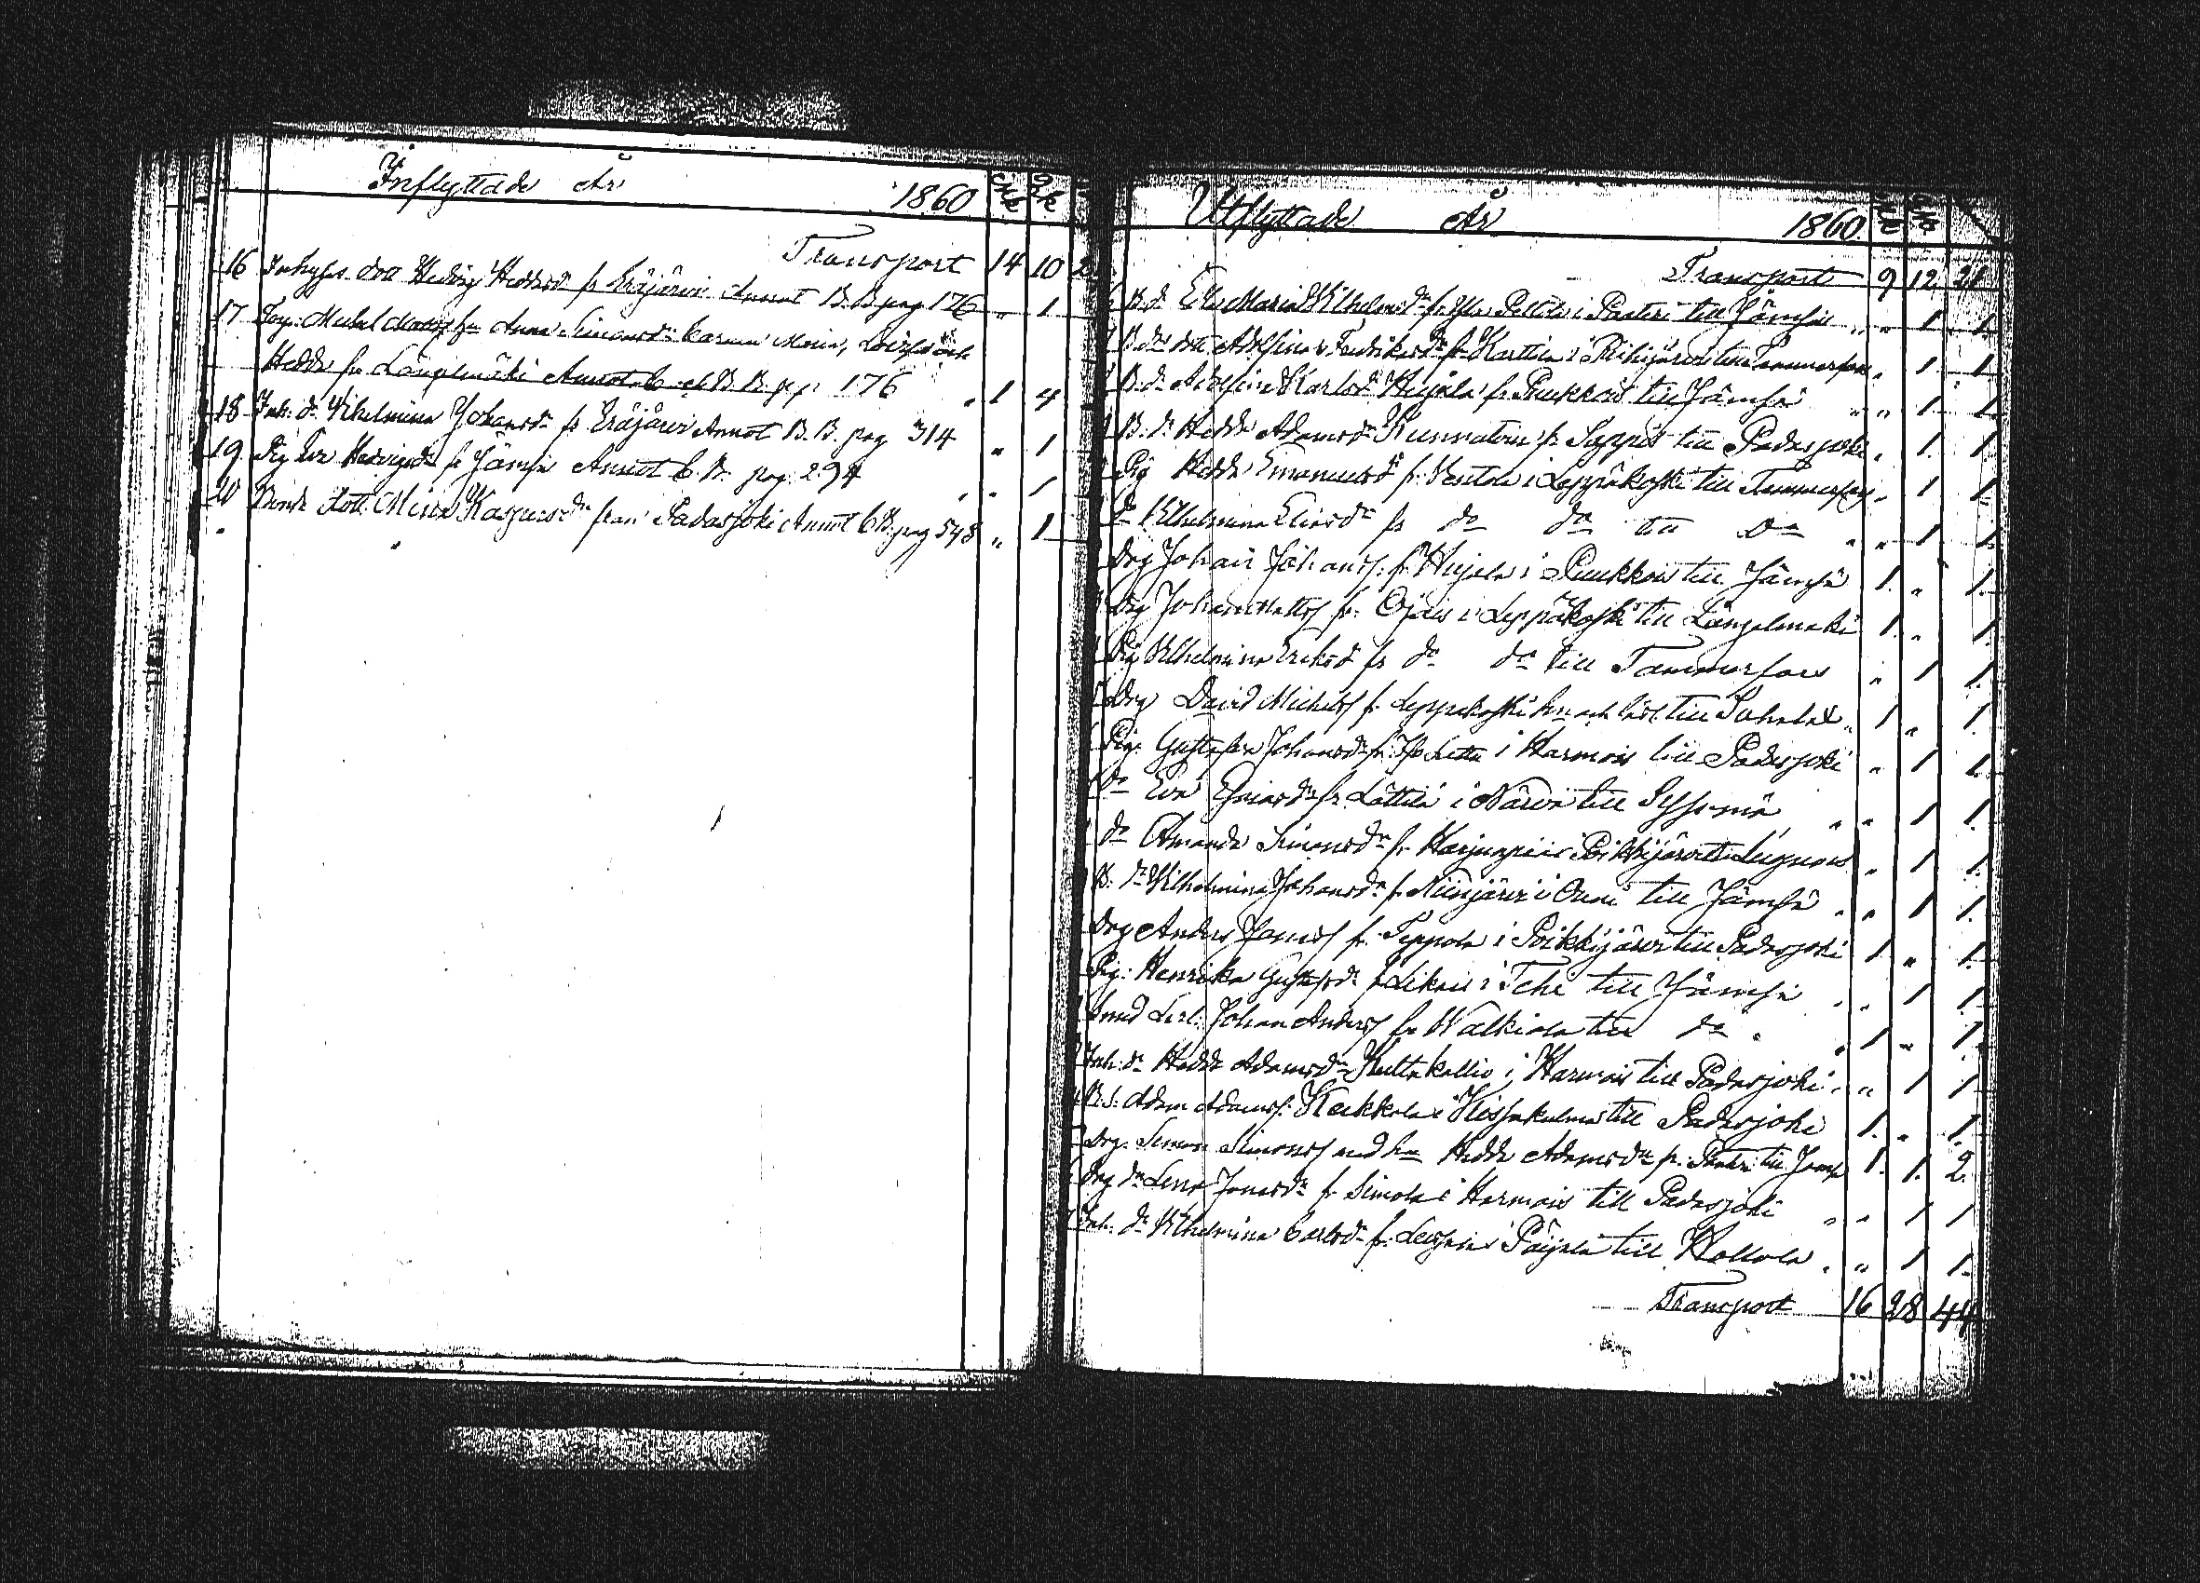 Inflyttade År 1860 Mk Qk
Transport 14 10
16 Inhyses dott Hedvig Heddasdr fr Eräjärvi Annot B.B. pag 176 " 1
17 Torp. Michel Matts h:u Anna Simonsdr barnen Maria, Lovisa och
Hedda fr Längelmäki Annot B.B. pag 176 " 1 4
18 Inh. dr Vilhelmina Johansdr fr Eräjärvi Annot B.B. pag 314 " 1
19 Pig Eva Hedvigsdr fr Jämsä Annot C.B. pag. 294 " " 1
20 Bonde dott. Mina Kaspersdr från Padasjoki Annot C.B. pag 548 " 1
Utflyttade År 1860
Transport 9 12 21
B. dr Eva Maria Vilhelmsdr fr Pettola i Päxteri till Jämsä " " 1 1
B. dr dott Adolfina Fredriksdr fr Karttila i Pihkijärvi till Tammerfors " 1 1
B. dr Adolfina Karlsdr Heijala fr Puukkois till Jämsä " " 1 1
B. dr Hedda Adamsdr Kunnatu fr Seppis till Padasjoki " 1 1
Pig Hedda Emanuelsdr fr Ventola i Leppäkoski till Tammerfors " 1 1
do Vilhelmina Eliasdr fr do do till do " " 1 1
Drg Johan Johanss. fr Heijala i Puukkois till Jämsä 1 " 1
Drg Johan Matts fr Ojais i Leppäkoski till Längelmäki 1 " 1
Pig Vilhelmina Eriksdr fr do do till Tammerfors " 1 1
Drg David Michels fr Leppäkoski till Sahalax 1 " 1
Pig. Gustafva Johansdr fr i Harmois till Padasjoki " 1 1
do Eva Esaiasdr fr Lättilä i Närvä till Sysmä " " 1 1
do Amanda Simonsdr fr Harjunpää i Poikkijärvi till " 1 1
B. dr Vilhelmina Johansdr fr Niinijärvi i till Jämsä " " 1 1
Drg Anders Jonass fr Seppola i Poikkijärvi till Padasjoki 1 " 1
Pig: Henrika Gustafsdr fr i Tehi till Jämsä " " 1 1
Smed Lärl. Johan Anders fr Walkiala till do " 1 " 1
Inh. dr Hedda Adamsdr Kultakallio i Harmois till Padasjoki " " 1 1
B. s. Adam Adamss. Keikkola i Kissakulma till Padasjoki 1 " 1
Drg. Simon Simonss med h:u Hedda Adamsdr fr. till Jämsä 1 1 2
Drg dr Lena Jonasdr fr Simola i Harmois till Padasjoki " " 1 1
Inh. dr Vilhelmina Carlsdr fr. i Päijälä till Hollola " " 1 1
Transport 16 28 44